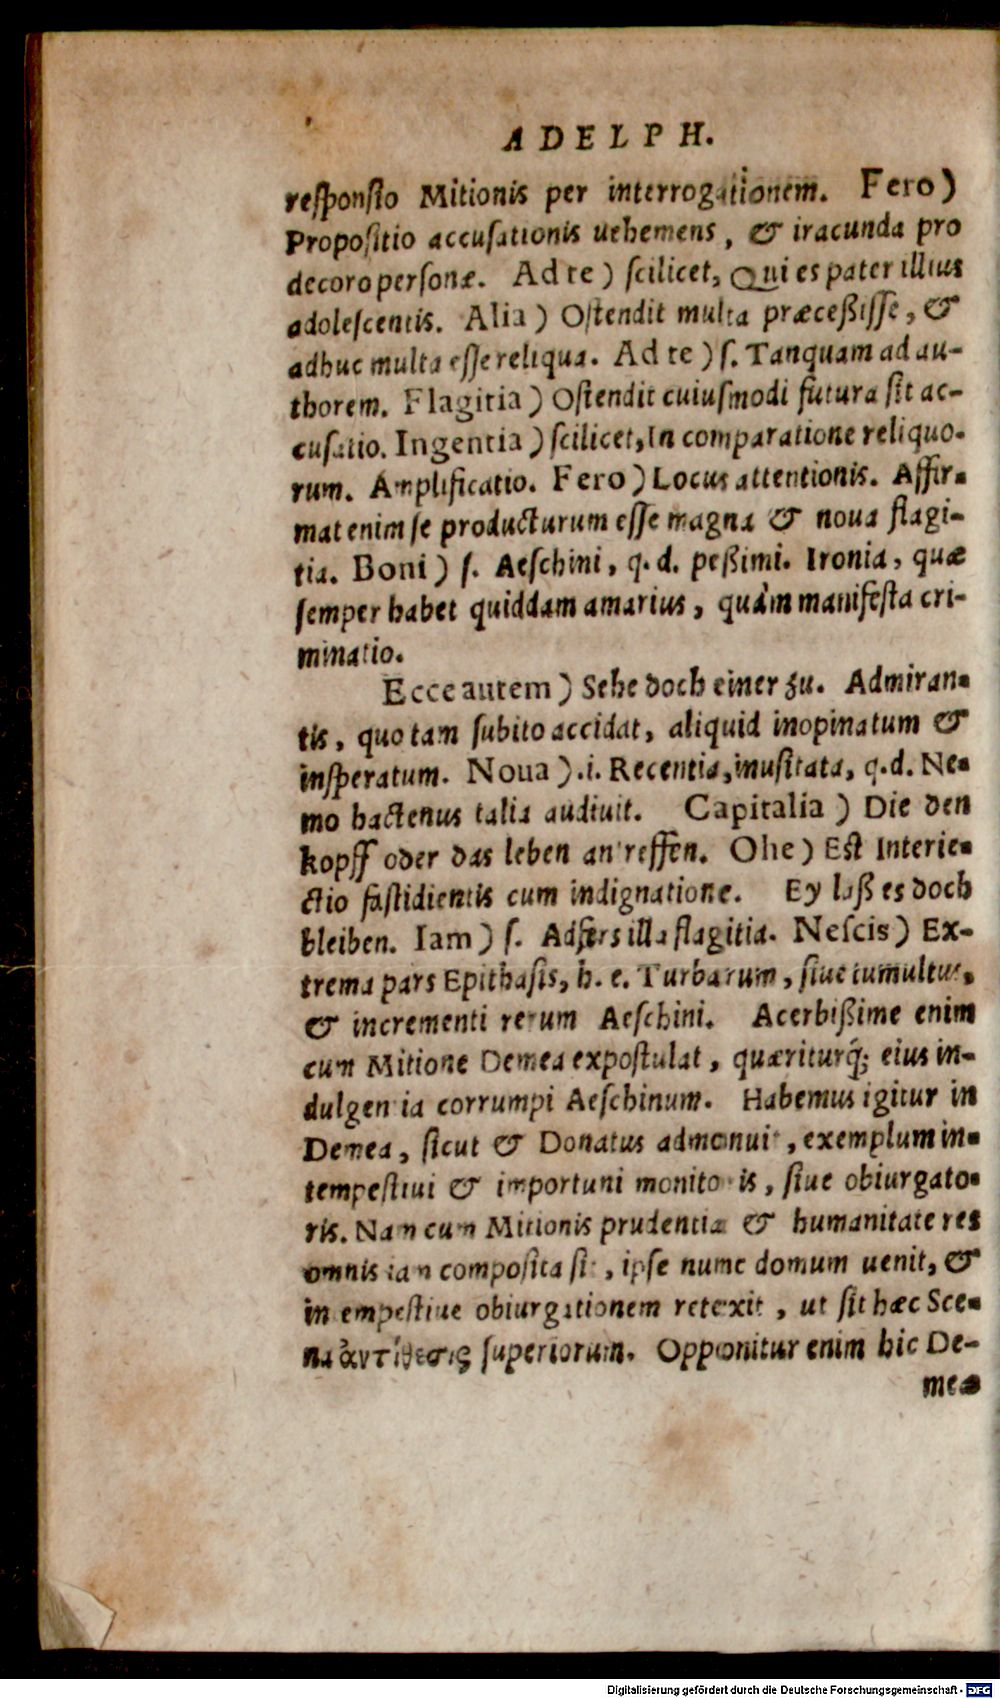 ADELPH.
reſponſio Mitionis per interrogationem. Fero)
Propoſitio accuſationis uehemens, & iracunda pro
decoro perſonæ. Ad te) ſcilicet, Qui es pater illius
adoleſcentis. Alia) Oſtendit multa præceßiſſe, &
adhuc multa eſſe reliqua. Ad te) ſ. Tanquam ad au-
thorem. Flagitia) Oſtendit cuiuſmodi futura ſit ac-
cuſatio. Ingentia) ſcilicet, In comparatione reliquo-
rum. Amplificatio. Fero) Locus attentionis. Affir-
mat enim ſe producturum eſſe magna & noua flagi-
tia. Boni) ſ. Aeſchini, q. d. peßimi. Ironia, quæ
ſemper habet quiddam amarius, quàm manifeſta cri-
minatio.
Ecce autem) Sehe doch einer zu. Admiran-
tis, quo tam ſubito accidat, aliquid inopinatum &
inſperatum. Noua) .i. Recentia, inuſitata, q.d. Ne-
mo hactenus talia audiuit. Capitalia) Die den
kopff oder das leben antreffen. Ohe) Eſt Interie-
ctio faſtidientis cum indignatione. Ey laß es doch
bleiben. Iam) ſ. Adfers illa flagitia. Neſcis) Ex-
trema pars Epithaſis, h. e. Turbarum, ſiue tumultus,
& incrementi rerum Aeſchini. Acerbißime enim
cum Mitione Demea expoſtulat, quæriturq́; eius in-
dulgentia corrumpi Aeſchinum. Habemus igitur in
Demea, ſicut & Donatus admonuit, exemplum in-
tempeſtiui & importuni monitoris, ſiue obiurgato-
ris. Nam cum Mitionis prudentia & humanitate res
omnis iam compoſita ſit, ipſe nunc domum uenit, &
intempeſtiue obiurgationem retexit, ut ſit hæc Sce-
na ἀντίθεσις ſuperiorum. Opponitur enim hic De-
mea
Digitalisierung gefördert durch die Deutsche Forschungsgemeinschaft - DFG